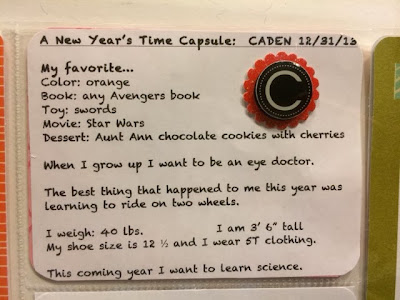 A New Year's Time Capsule: CADEN 12/31/13
My favorite...
Color: orange
Book: any Avengers book
Toy: swords
Movie: Star Wars
Dessert: Aunt Ann chocolate cookies with cherries
C
When I grow up I want to be an eye doctor.
The best thing that happened to me this year was
learning to ride on two wheels.
I weigh: 40 lbs. I am 3' 6" tall
My shoe size is 12 ½ and I wear 5T clothing.
This coming year I want to learn science.